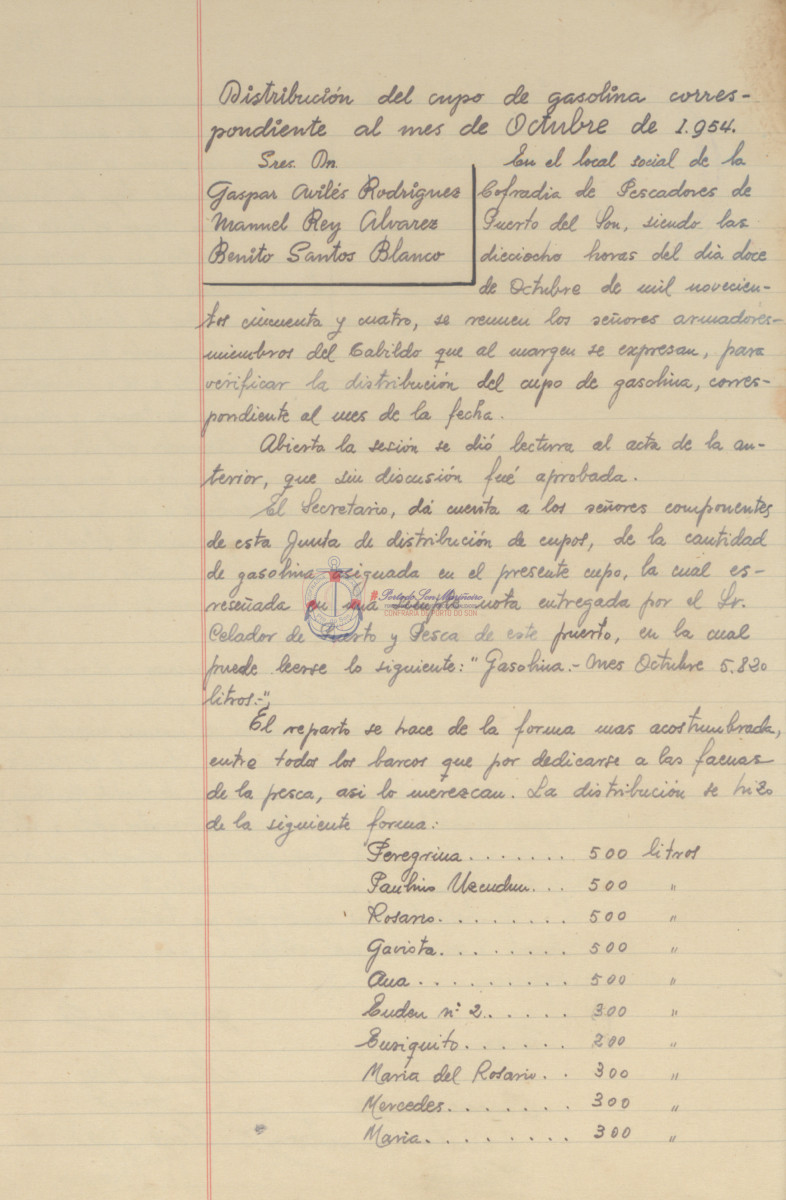 Distribución del cupo de gasolina corres-
pondiente al mes de Octubre de 1.954.
Sres. Dn.
Gaspar Avilés Rodriguez
Manuel Rey Alvarez
Benito Santos Blanco
En el local social de la
Cofradia de Pescadores de
Puerto del Son, siendo las
dieciocho horas del dia doce
de Octubre de mil novecien-
tos cincuenta y cuatro, se reunen los señores armadores-
miembros del Cabildo que al margen se expresan, para
verificar la distribución del cupo de gasolina, corres-
pondiente al mes de la fecha.
Abierta la sesión se dió lectura al acta de la an-
terior, que sin discusión fué aprobada.
El Secretario, dá cuenta a los señores componentes
de esta Junta de distribución de cupos, de la cantidad
de gasolina asignada en el presente cupo, la cual es-
reseñada en una simple nota entregada por el Sr.
Celador de Puerto y Pesca de este puerto, en la cual
puede leerse lo siguiente: "Gasolina.- Mes Octubre 5.820
litros.-",
El reparto se hace de la forma mas acostumbrada,
entre todos los barcos que por dedicarse a las faenas
de la pesca, asi lo merezcan. La distribución se hizo
de la siguiente forma:
Peregrina ....... 500 litros
Paulino Uzcudun... 500 "
Rosario......... 500 "
Gaviota......... 500 "
Ana.......... 500 "
nº 2..... 300 "
....... 200 "
Maria del Rosario.. 300 "
Mercedes........ 300 "
Maria......... 300 "
CONFRARÍA DE PORTO DO SON